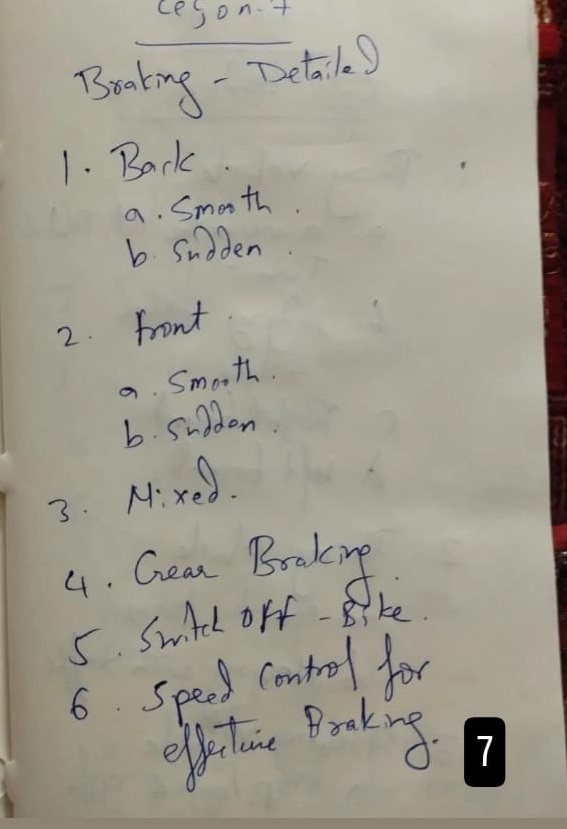 Leson.7
Braking - Detailed
1. Back.
a. Smooth.
b. Sudden.
2. front.
a. Smooth.
b. Sudden.
3. Mixed.
4. Gear Braking.
5. Switch Off - Bike.
6. Speed Control for
effective Braking.
7